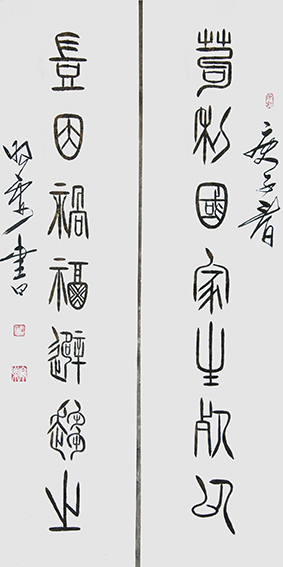 庚子春
苟利國家生死以
豈因禍福避趨之
書